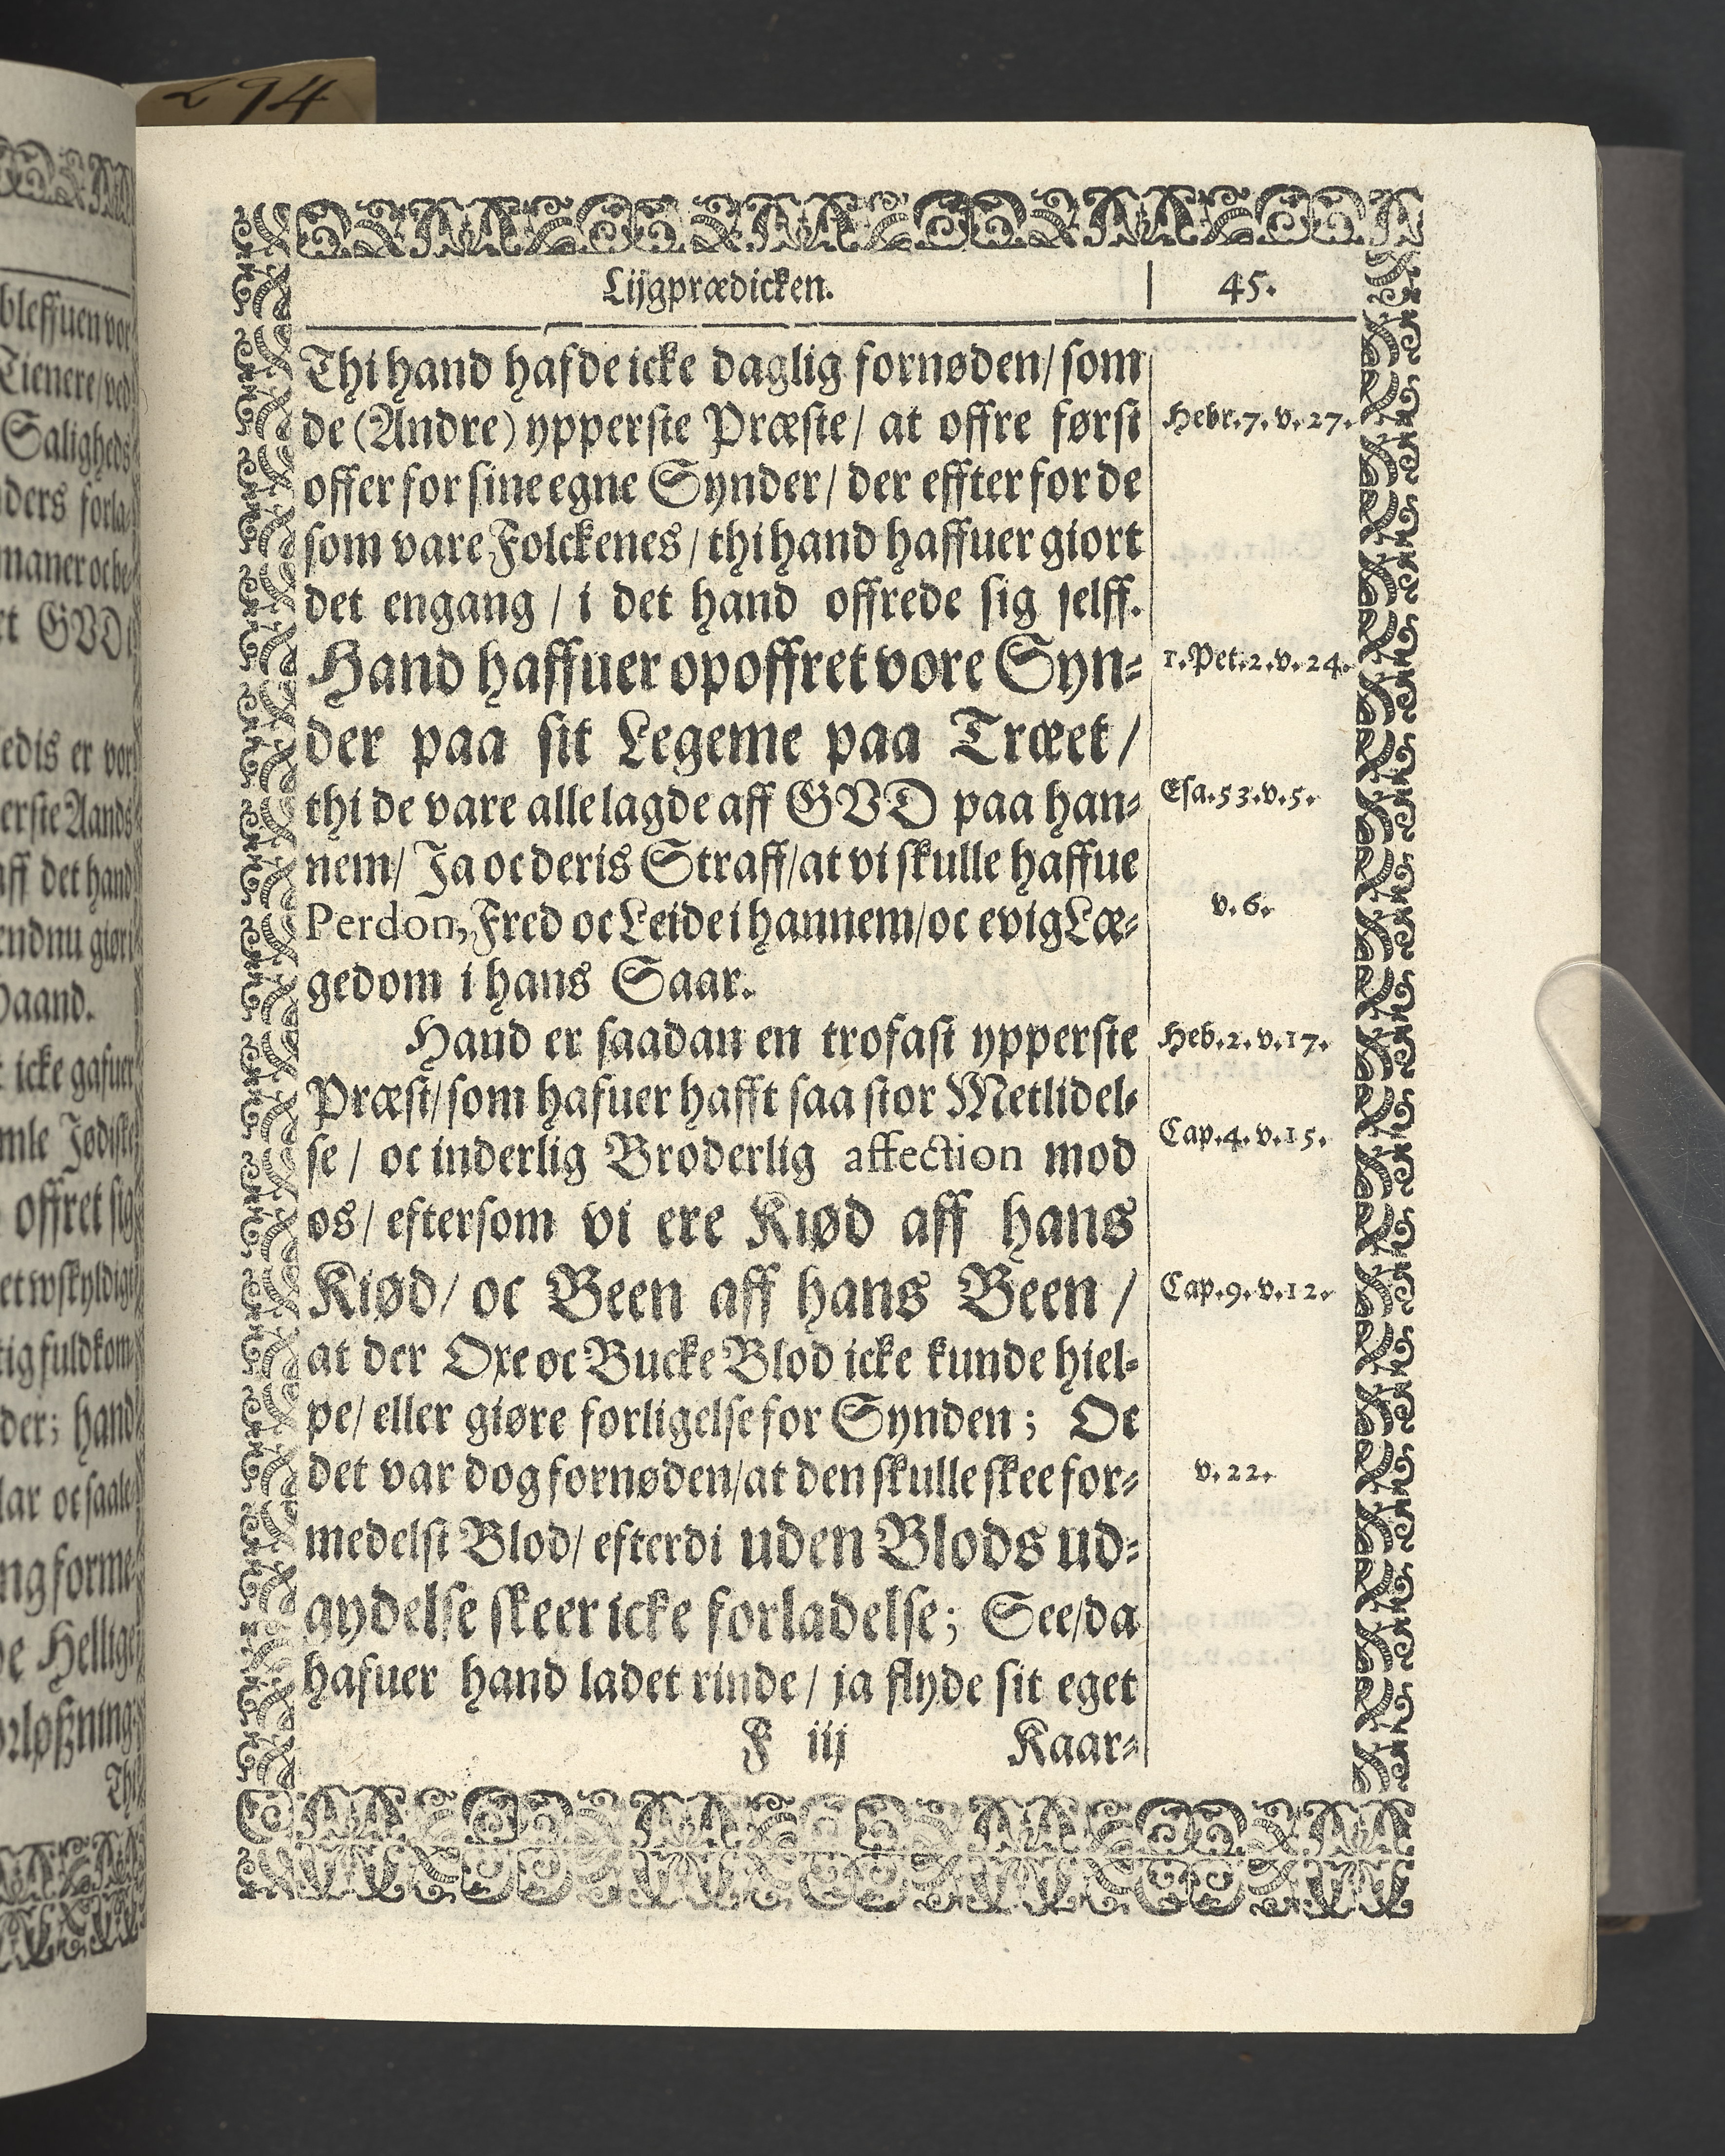 294
Lijgprædicken.
45.
Thi hand hafde icke daglig fornøden/ som
de (Andre) ypperste Præste/ at offre først
offer for sine egne Synder/ der effter for de
som vare Folckenes/ thi hand haffuer giort
det engang / i det hand offrede sig selff.
Hand haffuer opoffret vore Syn⸗
der paa sit Legeme paa Træet /
thi de vare alle lagde aff GVD paa han⸗
nem/ Ja oc deris Straff/ at vi skulle haffue
Perdon, Fred oc Leide i hannem/ oc evig Læ⸗
gedom i hans Saar.
Hand er saadan en trofast ypperste
Præst/ som hafuer hafft saa stor Metlidel⸗
se / oc inderlig Broderlig affection mod
os/ eftersom vi ere Kiød aff hans
Kiød/ oc Been aff hans Been /
at der Oxe oc Bucke Blod icke kunde hiel⸗
pe/ eller giøre forligelse for Synden; Oc
det var dog fornøden/ at den skulle skee for⸗
medelst Blod/ efterdi uden Blods ud⸗
gydelse skeer icke forladelse; See/ da
hafuer hand ladet rinde/ ja flyde sit eget
F iij
Kaar⸗
Hebr. 7. v. 27.
1. Pet. 2. v. 24.
Esa. 53. v. 5.
v. 6.
Heb. 2. v. 17.
Cap. 4. v. 15.
Cap. 9. v. 12.
v. 22.
bleffuen vor
Tienere/ ved
Saligheds
ders forla⸗
maner oc be⸗
GVD
edis er vor
erste Aands
aff det hand
endnu giøri
Haand.
icke gafuer
mle Jødiske
offret sig
et wskyldigt
tig fuldkom⸗
der; hand
lar oc saale⸗
ng forme⸗
de Hellige
orløßning:
Thi